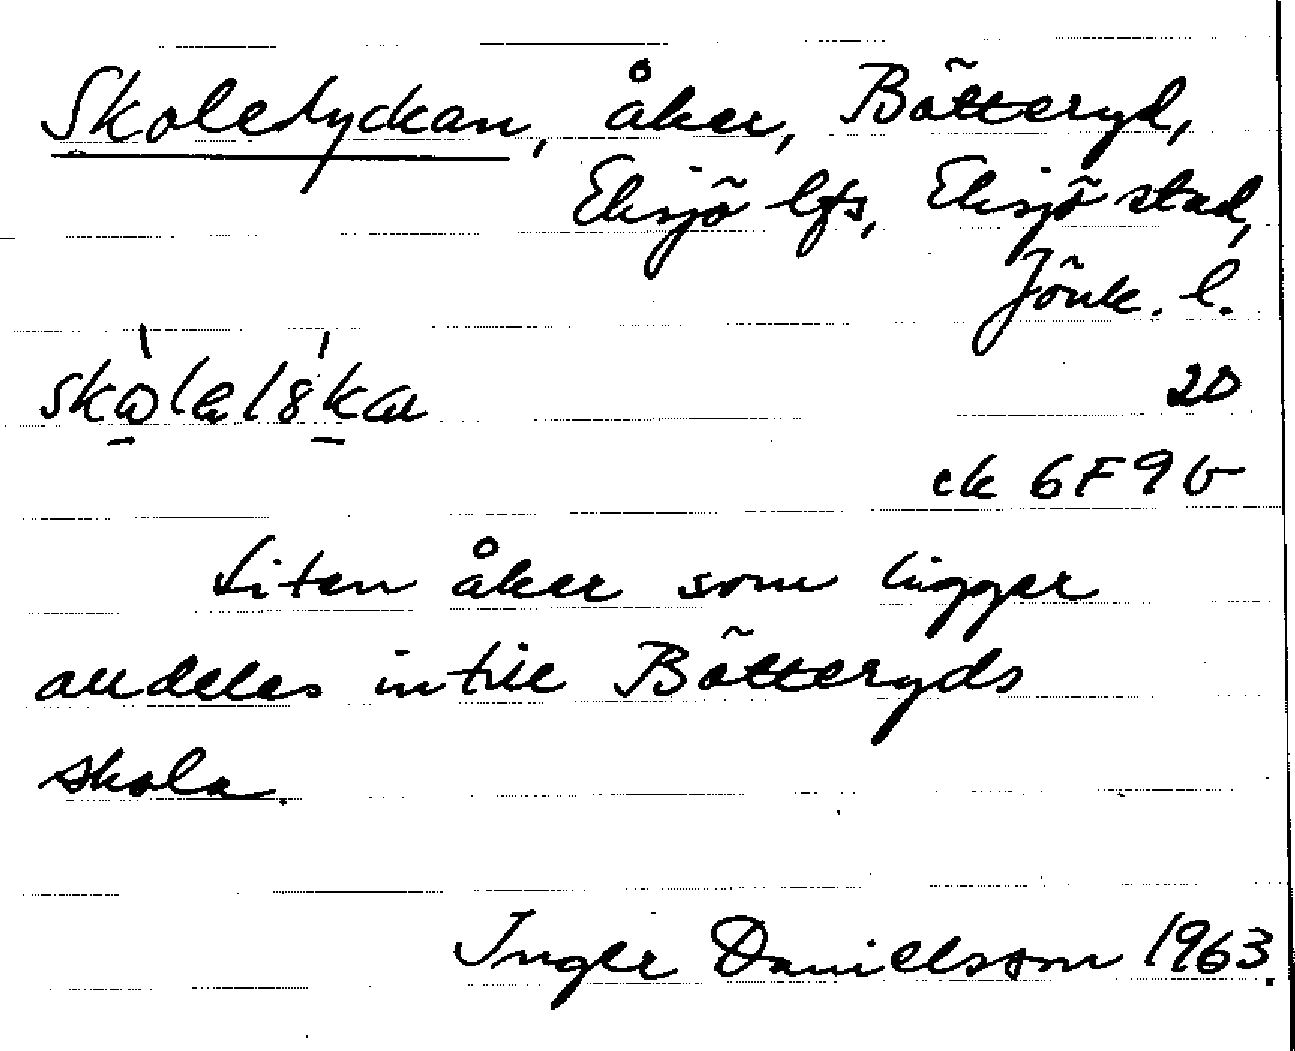 Skoletyckan, åker, Bötteryd,
Eksjö lfs, Eksjö stad,
Jönk. l.
20
ek 6F9b
Liten åker som ligger
alldeles intill Bötteryds
skola.
Inger Danielsson 1963.